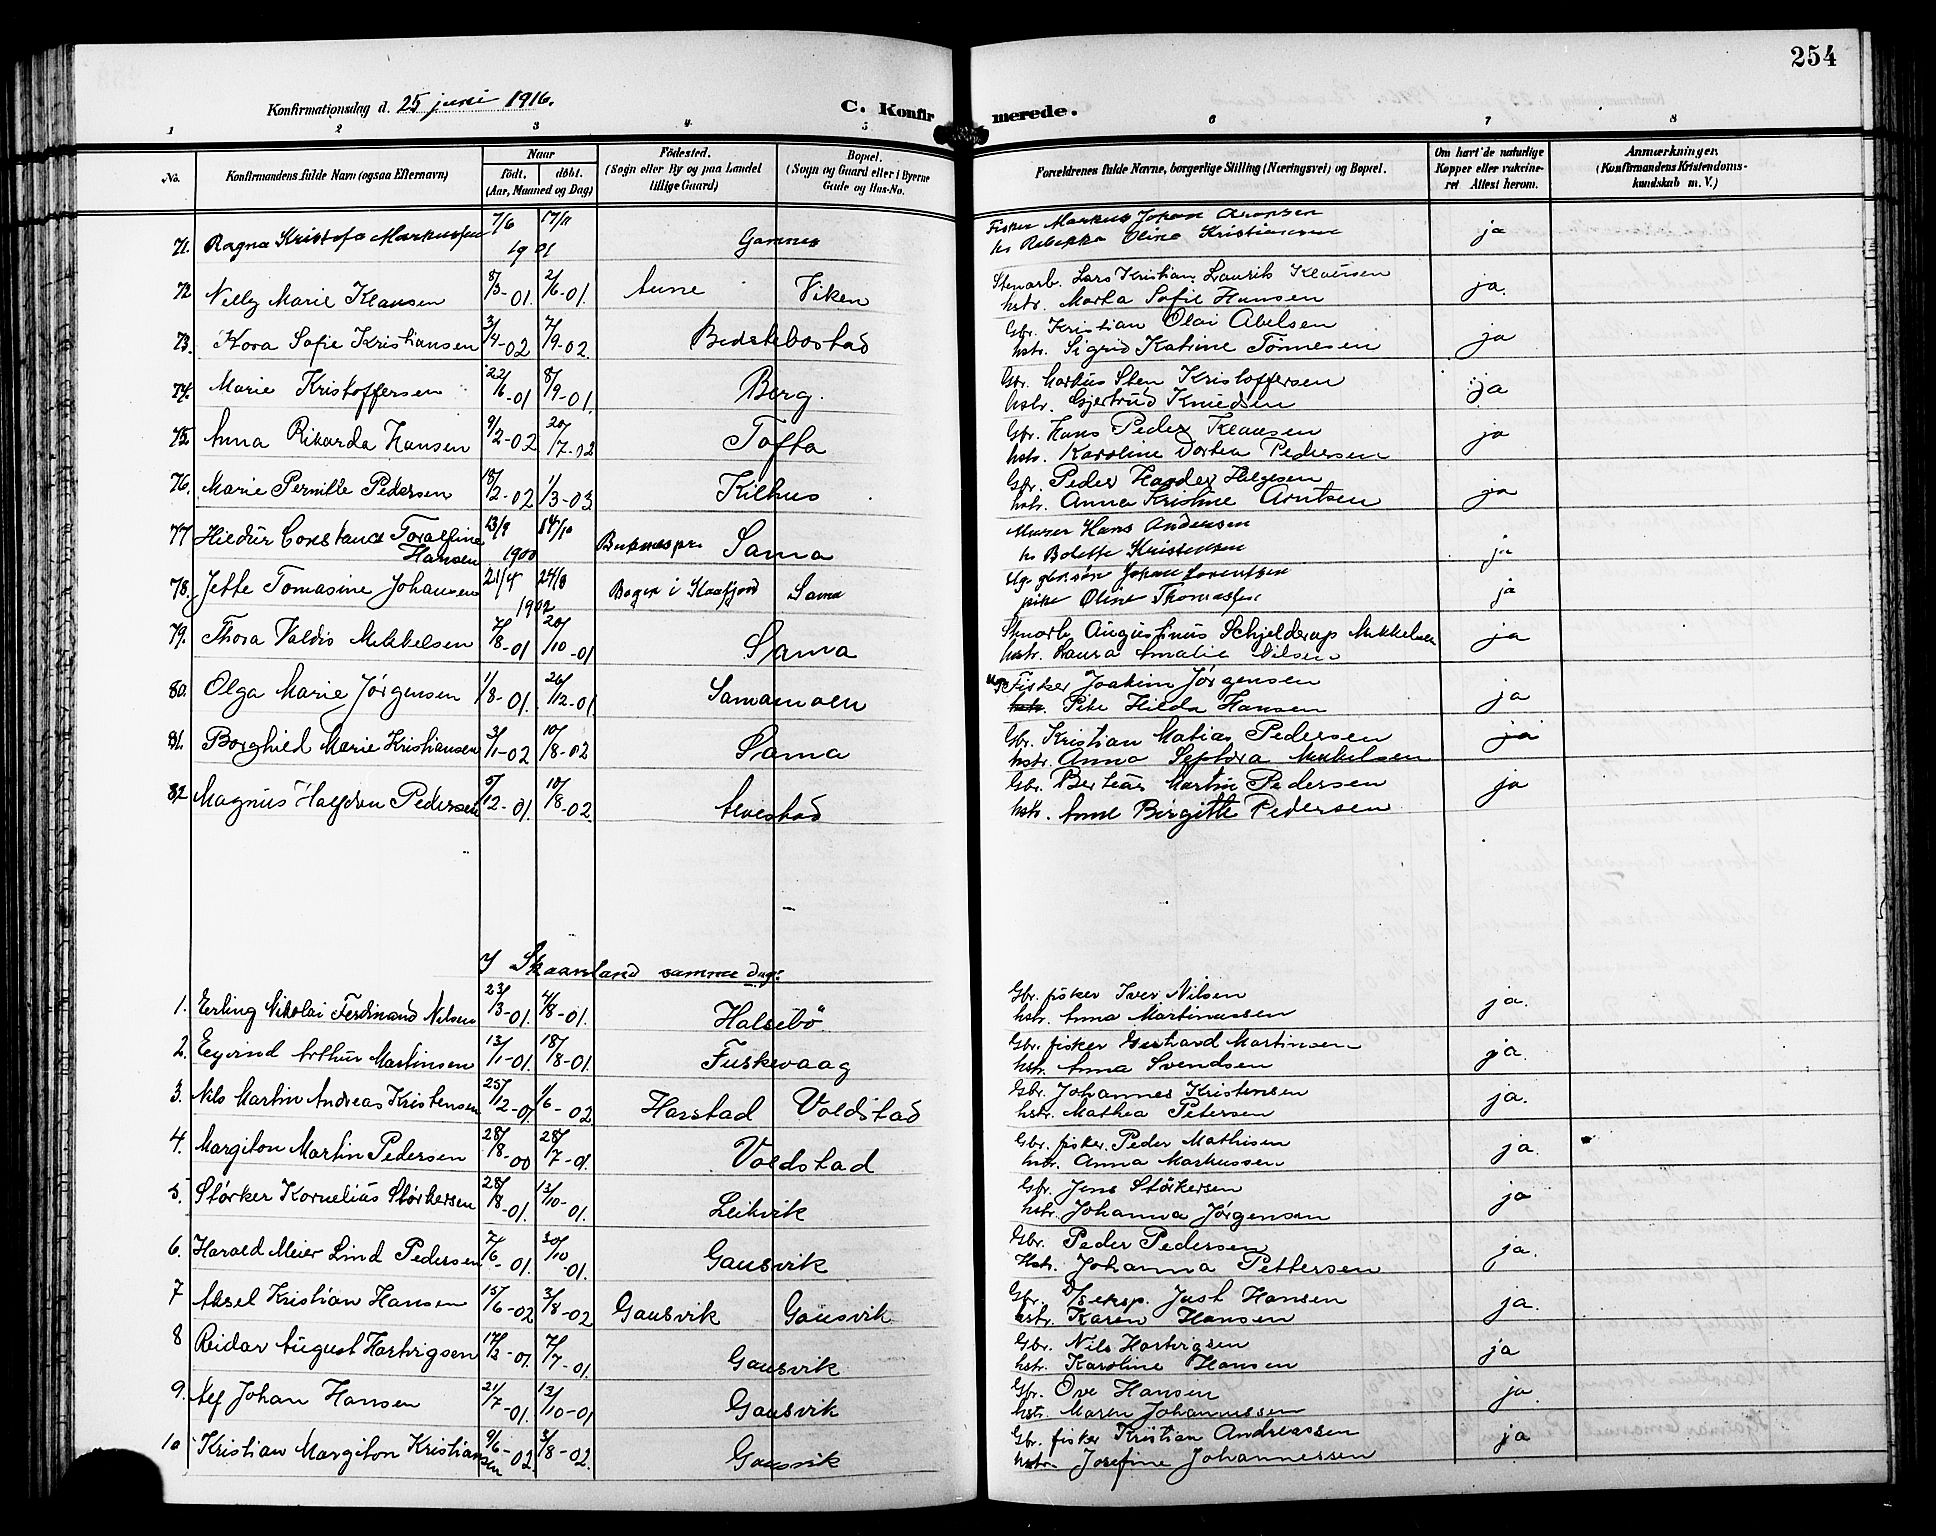 254
Konfirmationsdag d. 25 juni 1916.
C. Konfirmerede.
1 2 3 4 5 6 7 8
No. Konfirmandens fulde Navn (ogsaa Efternavn) Naar födt. döbt. (Aar, Maaned og Dag) Födested. (Sogn eller By og paa Landet tillige Gaard) Bopæl. (Sogn og Gaard eller i Byerne Gade og Hus-No. Forældrenes fulde Navne, borgerlige Stilling (Næringsvei) og Bopæl. Om havt de naturlige Kopper eller vakcineret Attest herom. Anmærkninger. (Konfirmandens Kristendomskundskab m. V.)
71. Ragna Kristofa Markussen 7/6 17/11 1901 Gamnes Fisker Markus Johan Aronsen ja
h. Rebekka Oline Kristiansen
72 Nelly Marie Klausen 8/3-01. 2/6-01. Aune Viken Stenarb. Lars Kristian Laurits Klausen ja.
hstr. Marta Sofie Hansen
73. Kora Sofie Kristiansen 3/4-02 7/9-02. Bedstebostad Gbr. Kristian Olai Abelsen ja
hstr. Sigrid Katrine Tönnesen
74. Marie Kristoffersen 22/6-01 8/9-01. Berg. Gbr. Markus Sten Kristoffersen ja
hstr. Gjertrud Knudsen
75. Anna Rikarda Hansen 9/2-02 20/7-02 Tofta Gbr. Hans Peder Klausen ja
hstr. Karoline Dortea Pedersen
76. Marie Pernille Pedersen 18/2-02 1/3-03 Kilhus Gbr. Peder Harder Helgesen ja
hstr. Anna Kristine Arntsen
77 Hildur Constance Toralfine Hansen 13/9 14/10 1900 Buknespr. Sama Murer Hans Andersen ja
h. Bolette Kristensen
78. Jette Tomasine Johansen 21/4 24/8 1902 Bogen i Kaafjord Sama Ug. gbr.sön Johan Lorentsen ja
pike Oline Thomassen
79. Thora Valdis Mikkelsen 7/8-01 20/10-01 Sama Stenarb. Augustinus Schjelderup Mikkelsen ja
hstr. Laura Amalie Nilsen
80. Olga Marie Jörgensen 1/8-01. 26/12-01. Samamoen Ug. Fisker Joakim Jörgensen ja
hstr. Pike Hilda Hansen
81. Borghild Marie Kristiansen 3/1-02 10/8-02 Sama Gbr. Kristian Matias Pedersen ja
hstr. Anna Septora Mikkelsen
82 Magnus Halfdan Pedersen 5/12-01. 10/8-02. Alvestad Gbr. Berteus Martin Pedersen ja
hstr. Anne Birgitte Pedersen
I Skaanland samme dag:
1. Erling Nikolai Ferdinand Nilsen 23/3-01. 4/8-01. Halsebö Gbr. fisker Iver Nilsen ja.
hstr. Anna Martinussen
2. Eyvind Arthur Martinsen 13/1-01. 18/8-01. Fuskevaag Gbr. fisker Gerhard Martinsen ja.
hstr. Anna Svendsen
3. Nils Martin Andreas Kristensen 25/12-01. 1/6-02 Harstad Voldstad Gbr. Johannes Kristensen ja.
hstr. Mathea Petersen
4. Margiton Martin Pedersen 28/8-00 28/7-01. Voldstad Gbr. fisker. Peder Mathisen ja.
hstr. Anna Markussen
5. Störker Kornelius Störkersen 28/8-01. 13/10-01. Leikvik Gbr. Jens Störkersen ja
hstr. Johanna Jörgensen
6. Harald Meier Lind Pedersen 7/6-01. 20/10-01. Gausvik Gbr. Peder Pedersen ja.
Hstr. Johanna Pettersen
7 Aksel Kristian Hansen 15/6-02 3/8-02 Gausvik Gausvik Gbr. D/S eksp. Just Hansen ja.
hstr. Karen Hansen
8 Reidar August Hartvigsen 17/3-01. 7/7-01. Gausvik Gbr. Nils Hartvigsen ja
hstr. Karoline Hansen
9. Alf Johan Hansen 21/7-01. 13/10-01 Gausvik Gbr. Ove Hansen ja.
hstr. Maren Johannessen
10 Kristian Margiton Kristiansen 9/6-02. 3/8-02. Gausvik Gbr. fisker Kristian Andreassen ja
hstr. Josefine Johannessen